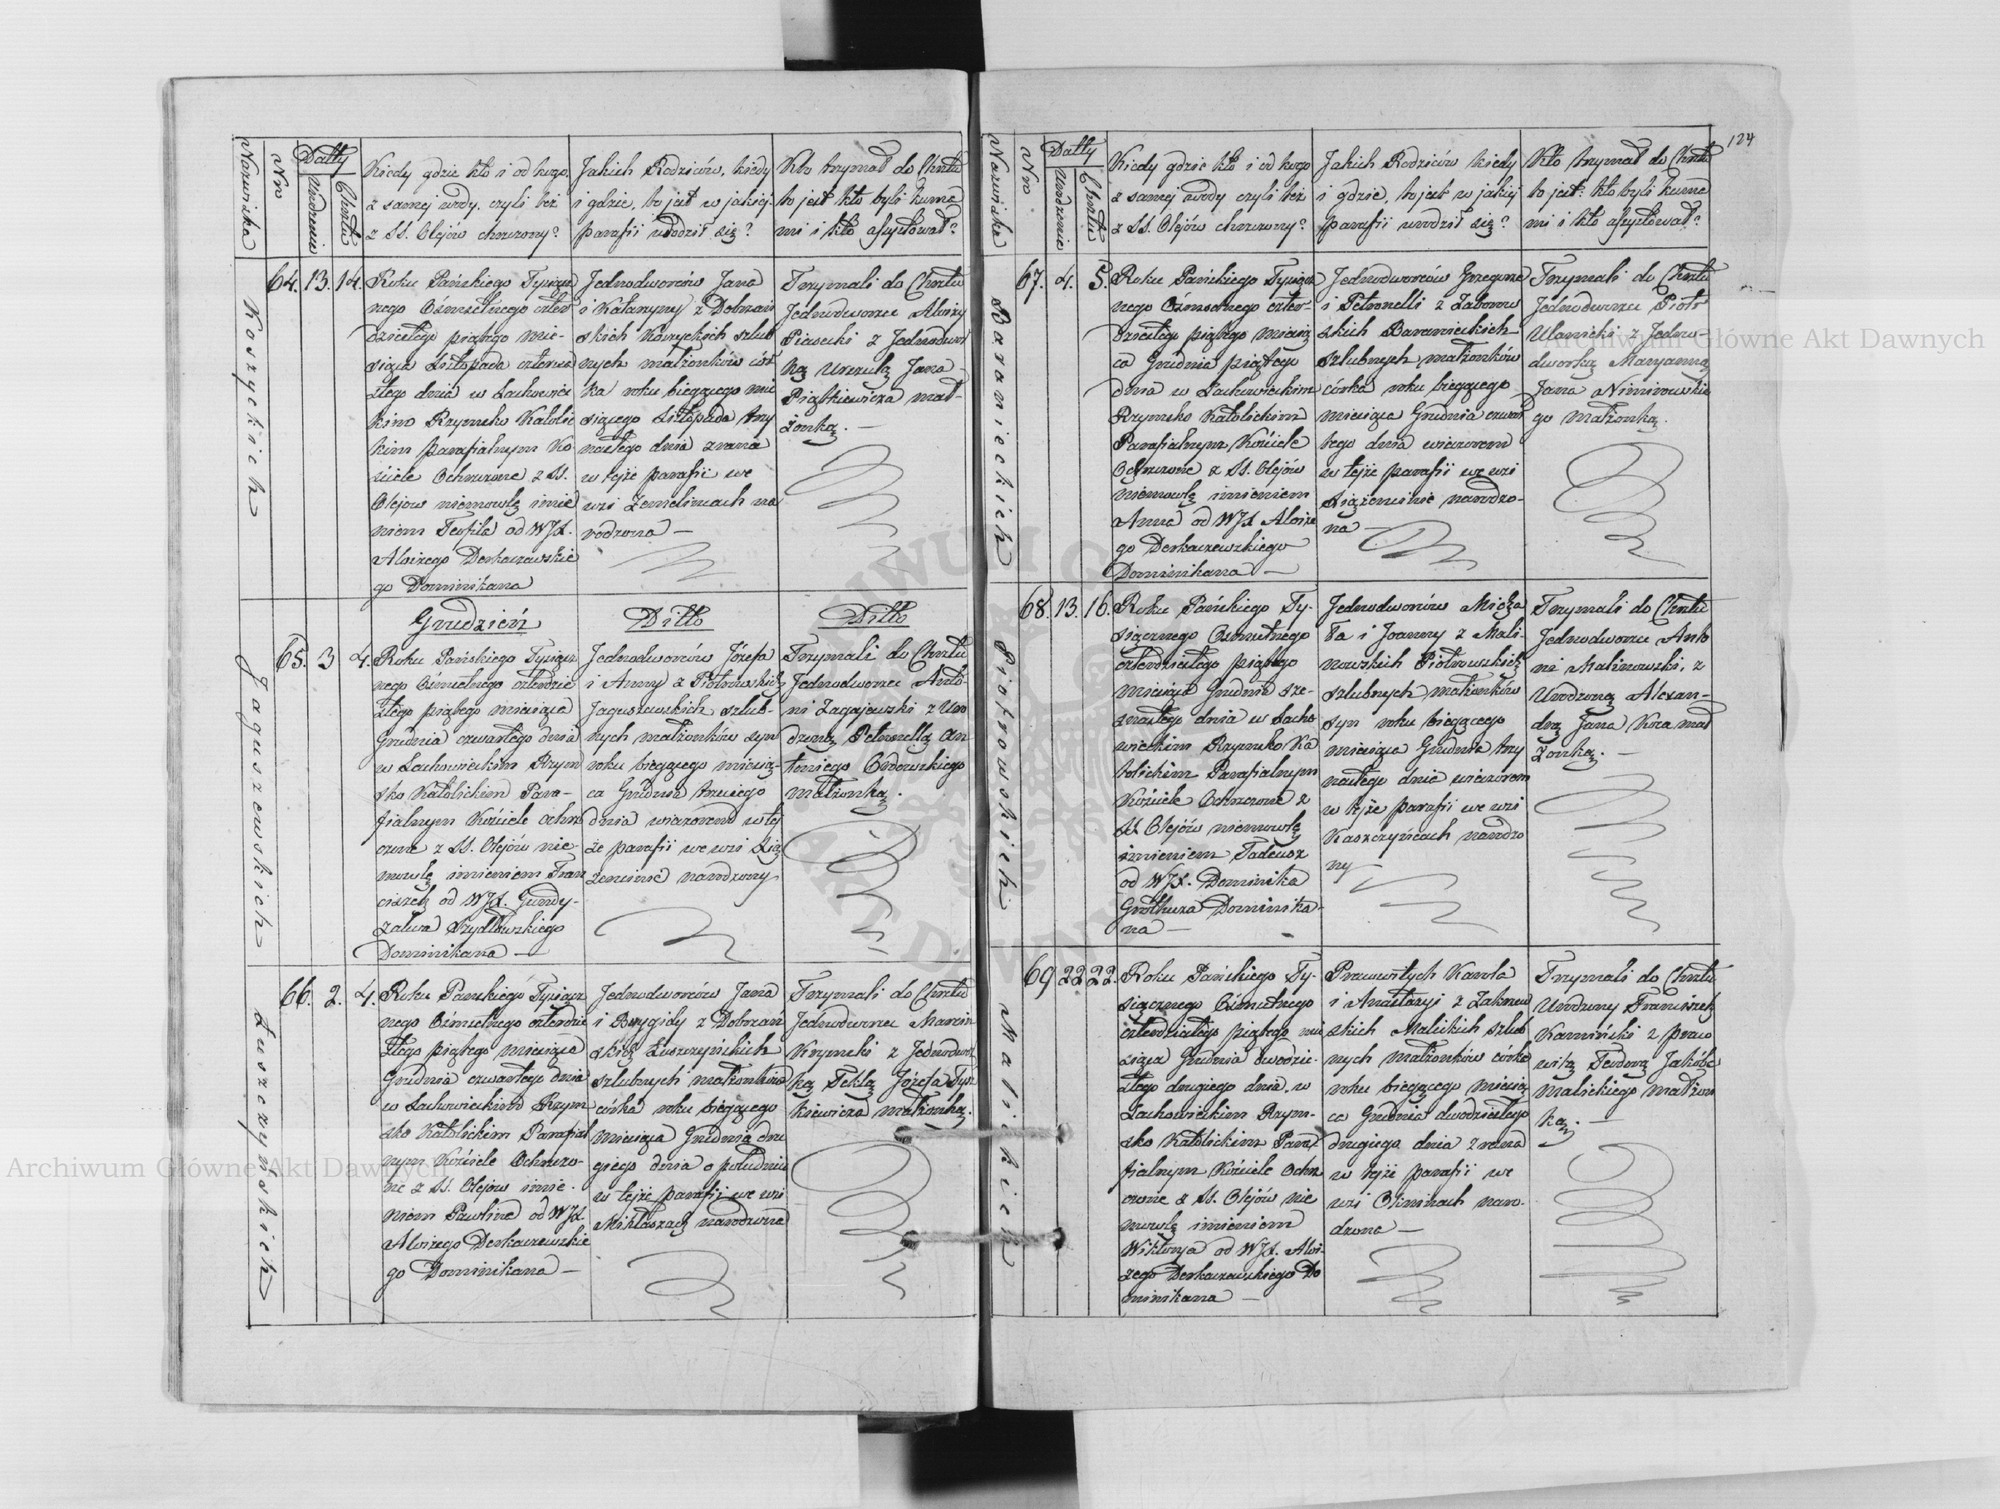 Nazwiska
Nro
Datty
Urodzenia
Chrztu
Kiedy gdzie kto i od kogo
z samej wody, czyli też
z SS. Olejów chrzczony?
Jakich Rodziców, kiedy
i gdzie, to jest w jakiej
Parafii urodził się?
Kto trzymał do Chrztu
to jest kto byli kume
mi i kto asystował?
Koszyckich
64. 13. 14.
Roku Pańskiego Tysiącz
nego Ośmsetnego czter
dziestego piątego mie-
siąca Listopada czterna
stego dnia w Lachowiec
kim Rzymsko Katolic
kim parafialnym Ko
ściele Ochrzczone z SS.
Olejow niemowlę imie
niem Teofila od WJX.
Aloizego Derkaczewskie
go Dominikana
Jednodworców Jana
i Katarzyny z Dobrzań
skich Koszyckich szlub
nych małżonków cór
ka roku bieżącego mie
siącego Listopada trzy
nastego dnia z rana
w tejże parafii we
wsi Zemelincach na
rodzona —
Trzymali do Chrztu
Jednodworzec Aloizy
Piasecki z Jednodwor
ką Urszulą Jana
Piątkiewicza mał-
żonką. —
Grudzień
Ditto
Ditto
Jaguszewskich
65. 3 4.
Roku Pańskiego Tysiącz
nego Ośmsetnego czterdzie
stego piątego miesiąca
Grudnia czwartego dnia
w Lachowieckim Rzym
sko Katolickim Para-
fialnym Kościele ochrz
czone z SS. Olejów nie-
mowlę imieniem Fran
ciszek od WJX. Gundy-
zalwa Szydłowskiego
Dominikana —
Jednodworców Józefa
i Anny z Piotrowskich
Jaguszewskich szlub-
nych małżonków syn
roku bieżącego miesią-
ca Grudnia trzeciego
dnia wieczorem w tej
że parafii we wsi Sią
żenince narodzony
Trzymali do Chrztu
Jednodworzec Anto-
ni Zagajewski z Uro
dzoną Petronellą An
toniego Ordowskiego
małżonką.
Łuszczyńskich
66. 2. 4.
Roku Pańskiego Tysiącz
nego Ośmsetnego czterdzie
stego piątego miesiąca
Grudnia czwartego dnia
w Lachowieckim Rzym
sko Katolickim Parafial
nym Kościele Ochrzczo-
ne z SS. Olejow imie-
niem Pawlina od WJX.
Aloizego Derkaczewskie
go Dominikana —
Jednodworców Jana
i Brygidy z Dobrzań
skich Łuszczyńskich
szlubnych małżonków
córka roku bieżącego
miesiąca Grudnia dru
giego dnia o południu
w tejże parafji we wsi
Miklaszach narodzona
Trzymali do Chrztu
Jednodworzec Marcin
Krzymski z Jednodwor
ką Teklą Józefa Tysz
kiewicza małżonką.
124
Nazwiska
Nro
Datty
Urodzenia
Chrztu
Kiedy gdzie kto i od kogo
z samej wody czyli też
z SS. Olejów chrzczony?
Jakich Rodziców kiedy
i gdzie, to jest w jakiej
parafii urodził się?
Kto trzymał do Chrztu
to jest: kto byli kume
mi i kto asystował?
Baranieckich
67. 4. 5.
Roku Pańskiego Tysiącz
nego Ośmsetnego czter-
dziestego piątego miesią
ca Grudnia piątego
dnia w Lachowieckim
Rzymsko Katolickim
Parafialnym Kościele
Ochrzczone z SS. Olejów
niemowlę imieniem
Anna od WJX Aloize
go Derkaczewskiego
Dominikana —
Jednodworców Grzegorza
i Petronelli z Zaborow
skich Baranieckich
szlubnych małżonków
córka roku bieżącego
miesiąca Grudnia czwar
tego dnia wieczorem
w tejże parafii we wsi
Siążenince narodzo-
na —
Trzymali do Chrztu
Jednodworzec Piotr
Ulanicki z Jedno
dworką Maryanną
Jana Nimirowskie
go Małżonką.
Piotrowskich
68. 13. 16.
Roku Pańskiego Ty-
siącznego Osmsetnego
czterdziestego piątego
miesiąca Grudnia sze-
snastego dnia w Lacho
wieckim Rzymsko Ka
tolickim Parafialnym
Kościele Ochrzczone z
SS Olejów niemowlę
imieniem Tadeusz
od WJX. Dominika
Grothuza Dominika-
na —
Jednodworców Micha
ła i Joanny z Mali-
nowskich Piotrowskich
szlubnych małżonków
syn roku bieżącego
miesiąca Grudnia trzy
nastego dnia wieczorem
w tejże parafii we wsi
Kaszczyńcach narodzo
ny
Trzymali do Chrztu
Jednodworzec Anto
ni Malinowski, z
Urodzoną Alexan-
drą Jana Koza mał
żonką. —
Malickich
69 22 22.
Roku Pańskiego Ty-
siącznego Ośmsetnego
czterdziestego piątego mie
siąca Grudnia dwodzie-
stego drugiego dnia, w
Lachowieckim Rzym-
sko Katolickim Para
fialnym Kościele Ochrz
czone z SS. Olejów nie
mowlę imieniem
Wiktorya od WJX. Aloi-
zego Derkaczewskiego Do
minikana —
Pracowitych Karola
i Anastazyi z Zakrzew
skich Malickich szlub
nych małżonków córka
roku bieżącego miesią
ca Grudnia dwodziestego
drugiego dnia z rana
w tejże parafii we
wsi Oliminach naro-
dzona —
Trzymali do Chrztu
Urodzony Franciszek
Kamiński z praco
witą Teodorą Jakóba
Malickiego małżon
ką. —
Archiwum Główne Akt Dawnych
Archiwum Główne Akt Dawnych